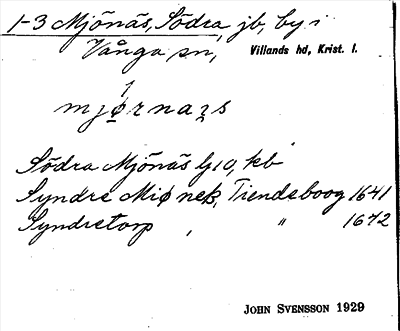 1-3 Mjönäs, Södra, jb, by i
Vånga sn, Villands hd, Krist. l.
mjørnaʒs
Södra Mjönäs
Syndre Miø nets, Tiendeboog 1641
Syndretorp, " 1672
JOHN SVENSSON 1929